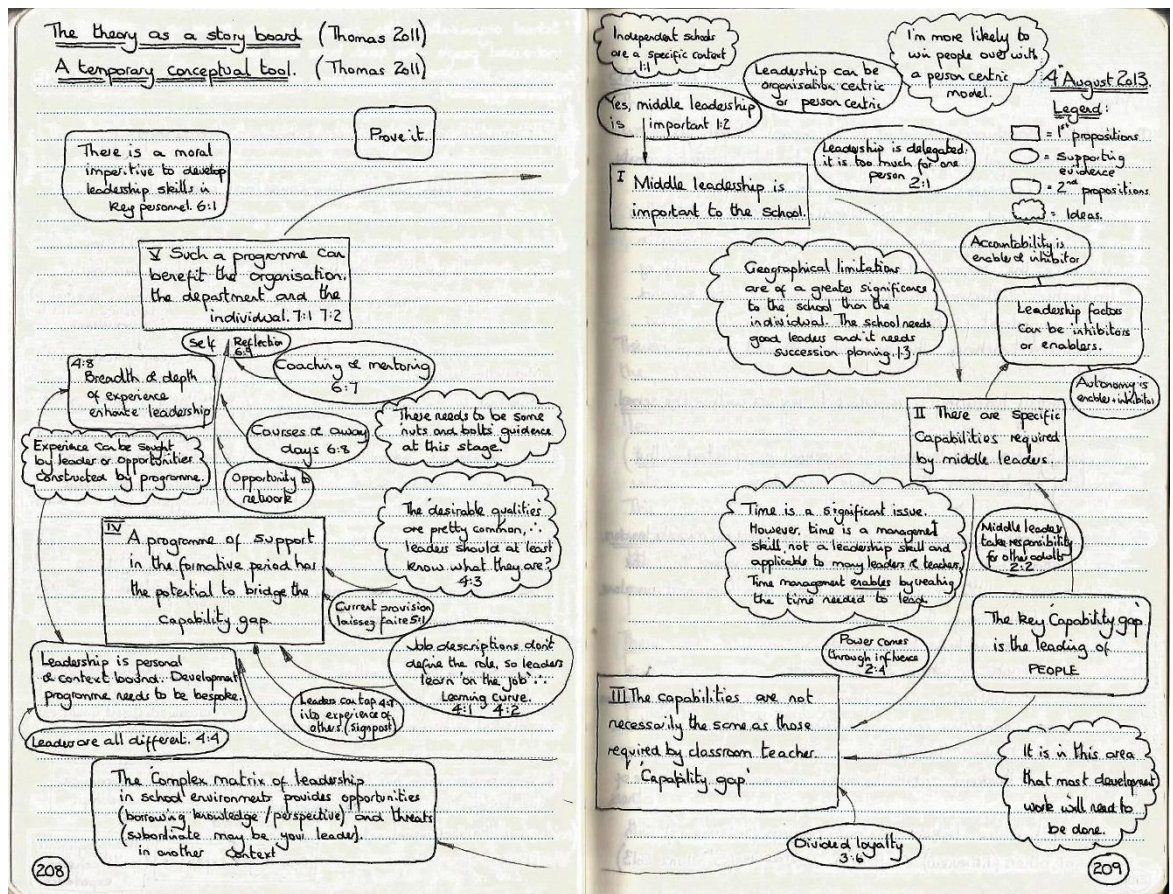 The theory as a story board (Thomas 2011)
A temporary conceptual tool. (Thomas 2011)
Prove it.
There is a moral
imperitive to develop
leadership skills in
key personnel. 6:1
V Such a programme can
benefit the organisation,
the department and the
individual. 7:1 7:2
Self Reflection
6:9
Coaching & mentoring
6:7
4:8
Breadth & depth
of experience
enhance leadership
Courses & away
days 6:8
There needs to be some
'nuts and bolts' guidance
at this stage.
Experience can be sought
by leader or opportunities
constructed by programme.
Opportunity to
network
The 'desirable qualities'
are pretty common, ∴
leaders should at least
know what they are?
4:3
IV
A programme of support
in the formative period has
the potential to bridge the
Capability gap.
Current provision
laissez faire 5:1
Job descriptions don't
define the role, so leaders
learn 'on the job' ∴
Learning curve.
4:1 4:2
Leadership is personal
& context bound. Development
programme needs to be bespoke.
Leaders can tap 4:7
into experience of
others (signpost)
Leaders are all different. 4:4
The 'Complex matrix of leadership
in school environments provides opportunities
(borrowing knowledge/perspective) and threats
(subordinate may be your leader).
in another context
208
Independent schools
are a specific context
1:1
Leadership can be
organisation centric
or person centric
I'm more likely to
win people over with
a person centric
model.
4th August 2013.
Legend:
= 1st propositions
= supporting
evidence
= 2nd propositions
= Ideas.
Yes, middle leadership
is important 1:2
Leadership is delegated:
it is too much for one
person 2:1
I Middle leadership is
important to the school.
Accountability is
enabler & inhibitor
Geographical limitations
are of a greater significance
to the school than the
individual. The school needs
good leaders and it needs
succession planning. 1:3
Leadership factors
can be inhibitors
or enablers.
Autonomy is
enabler + inhibitor
II There are specific
Capabilities required
by middle leaders.
Time is a significant issue.
However, time is a management
skill, not a leadership skill and
applicable to many leaders & teachers.
Time management enables by creating
the time needed to lead.
Middle leaders
take responsibility
for other adults
2:2
The key 'Capability gap'
is the leading of
PEOPLE
Power comes
through influence
2:4
III The capabilities are not
necessarily the same as those
required by classroom teacher.
'Capability gap'
It is in this area
that most development
work will need to
be done.
Divided loyalty
3:6
209